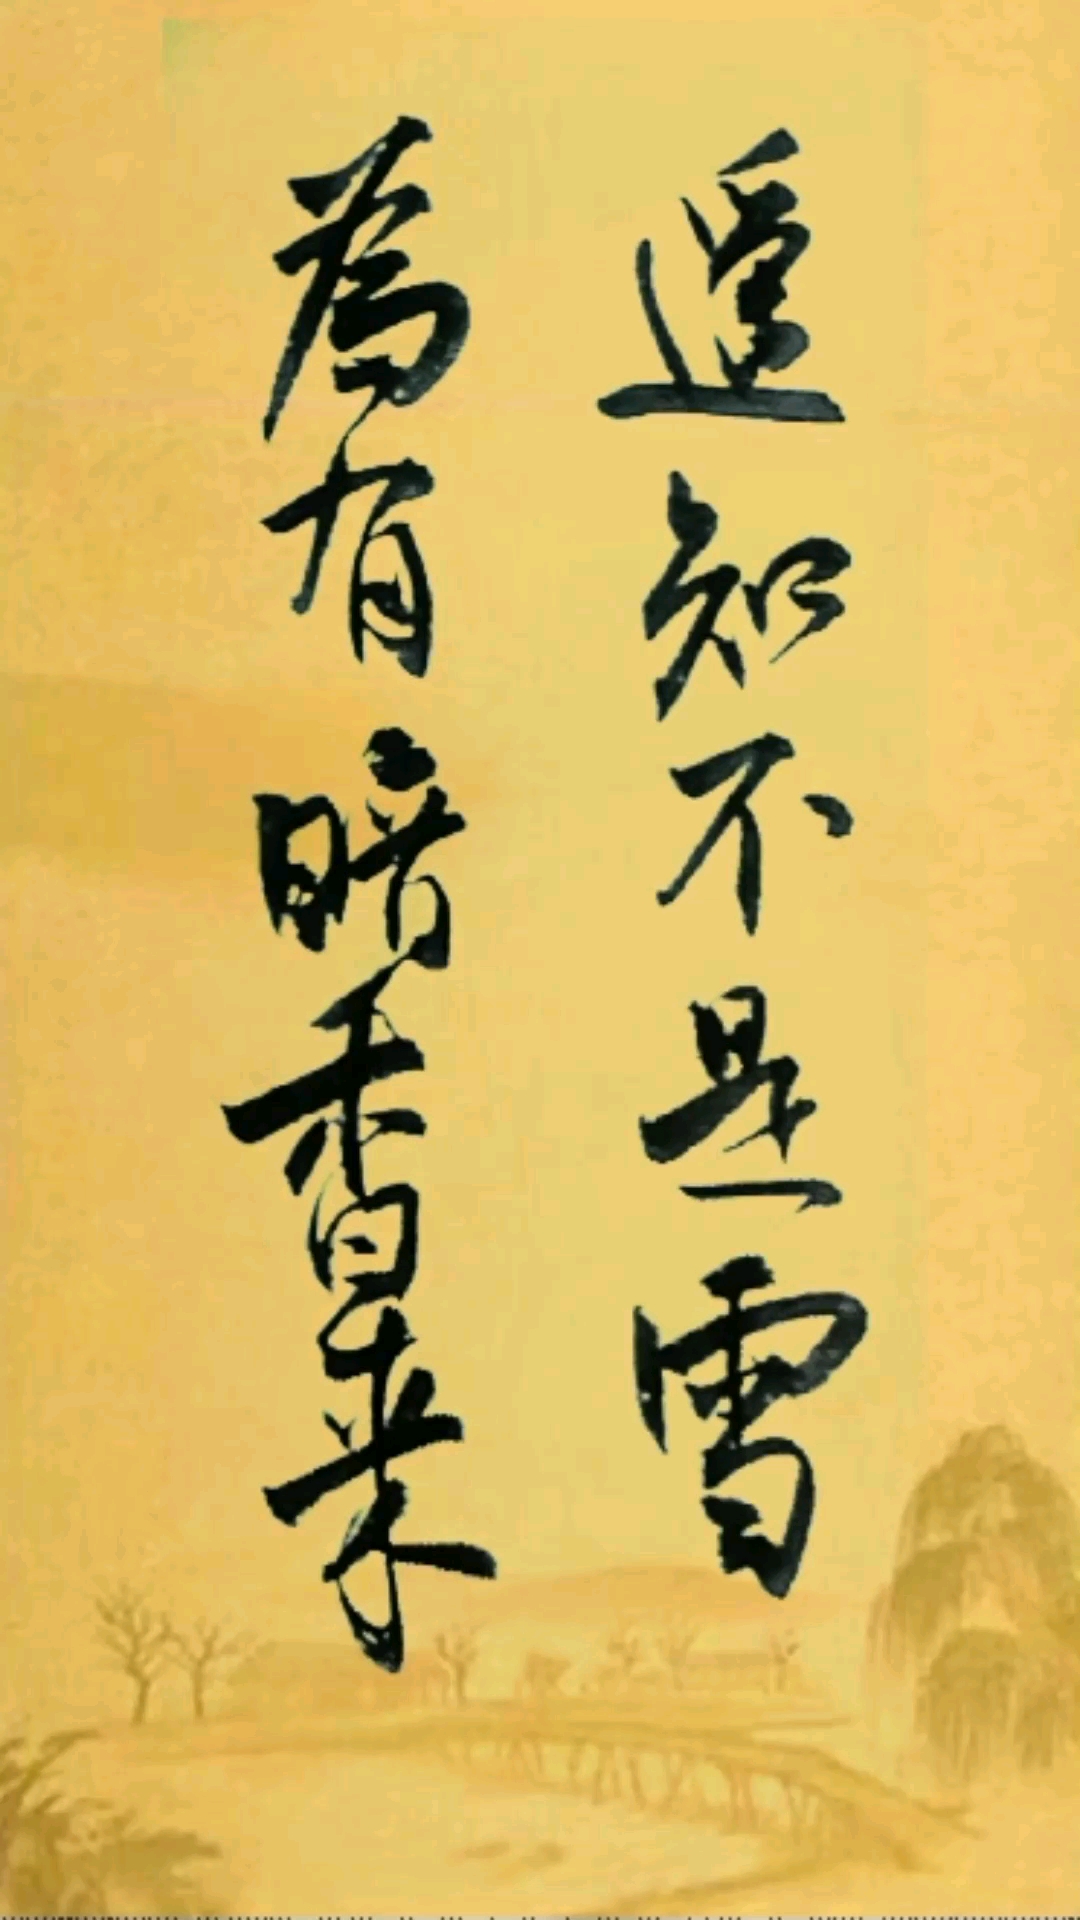 遥知不是雪
為有暗香来